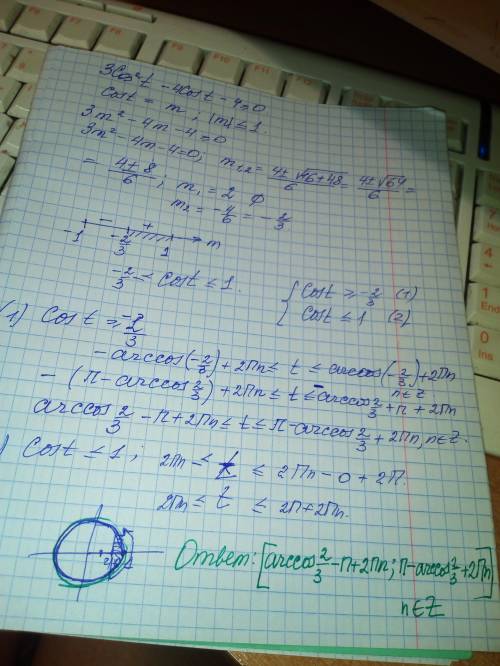 3cos²t - 4cost - 4 = 0
cost = m ; |m| ≤ 1.
3m² - 4m - 4 = 0
3m² - 4m - 4 = 0; m₁,₂ = (4 ± √(16+48))/6 = (4 ± √64)/6 =
= (4 ± 8)/6 ; m₁ = 2 ∅
m₂ = -4/6 = -2/3
- +
-1 -2/3 1 m
-2/3 ≤ cost ≤ 1.
{ cost ≥ -2/3 (1)
cost ≤ 1 (2)
(1) cost ≥ -2/3
-arccos(-2/3) + 2πn ≤ t ≤ arccos(-2/3) + 2πn
n∈Z
-(π - arccos 2/3) + 2πn ≤ t ≤ -arccos 2/3 + π + 2πn
arccos 2/3 - π + 2πn ≤ t ≤ π - arccos 2/3 + 2πn, n∈Z.
) cost ≤ 1 ; 2πn ≤ t ≤ 2πn - 0 + 2π.
2πn ≤ t ≤ 2π + 2πn.
Ответ: [arccos 2/3 - π + 2πn ; π - arccos 2/3 + 2πn]
n∈Z